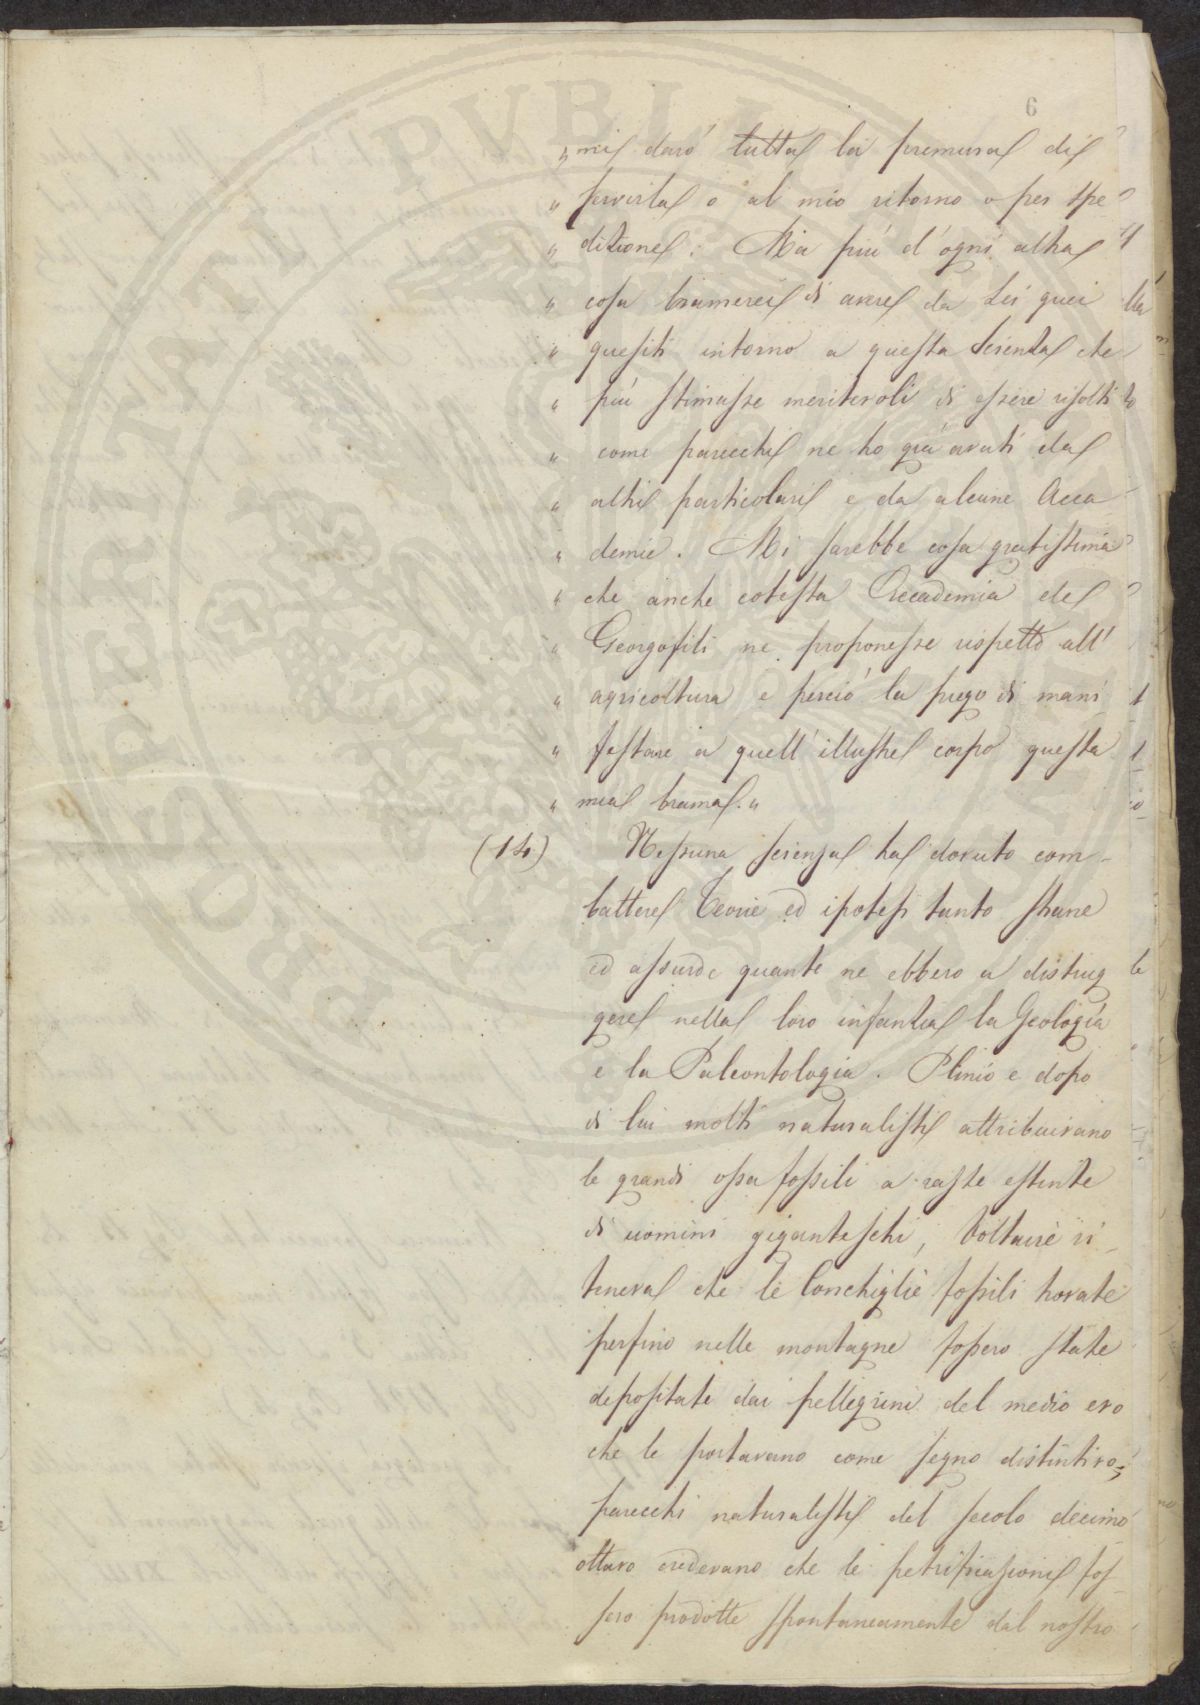 6
„ mi darò tutta la premura di
„ servirla o al mio ritorno o per spe
„ dizione: Ma più d'ogni altra
„ cosa bramerei di avere da Lei quei
„ quesiti intorno a questa Scienza che
„ più stimasse meritevoli di essere risolti
„ come parecchi ne ho già avuti da
„ altri particolari e da alcune Acca
„ demie. Mi sarebbe cosa gratissima
„ che anche cotesta Accademia de
„ Georgofili ne proponesse rispetto all'
„ agricoltura e perciò la prego di mani
„ festare a quell'illustre corpo questa
„ mia brama. „
(14) Nessuna scienza ha dovuto com-
battere Teorie ed ipotesi tanto strane
ed assurde quante ne ebbero a distrug
gere nella loro infanzia la Geologia
e la Paleontologia. Plinio e dopo
di lui molti naturalisti attribuivano
le grandi ossa fossili a razze estinte
di uomini giganteschi, Voltaire ri-
teneva che le Conchiglie fossili trovate
perfino nelle montagne fossero state
depositate dai pellegrini del medio evo
che le portavano come segno distintivo;
parecchi naturalisti del secolo decimo
ottavo credevano che le petrificazioni fos-
sero prodotte spontaneamente dal nostro